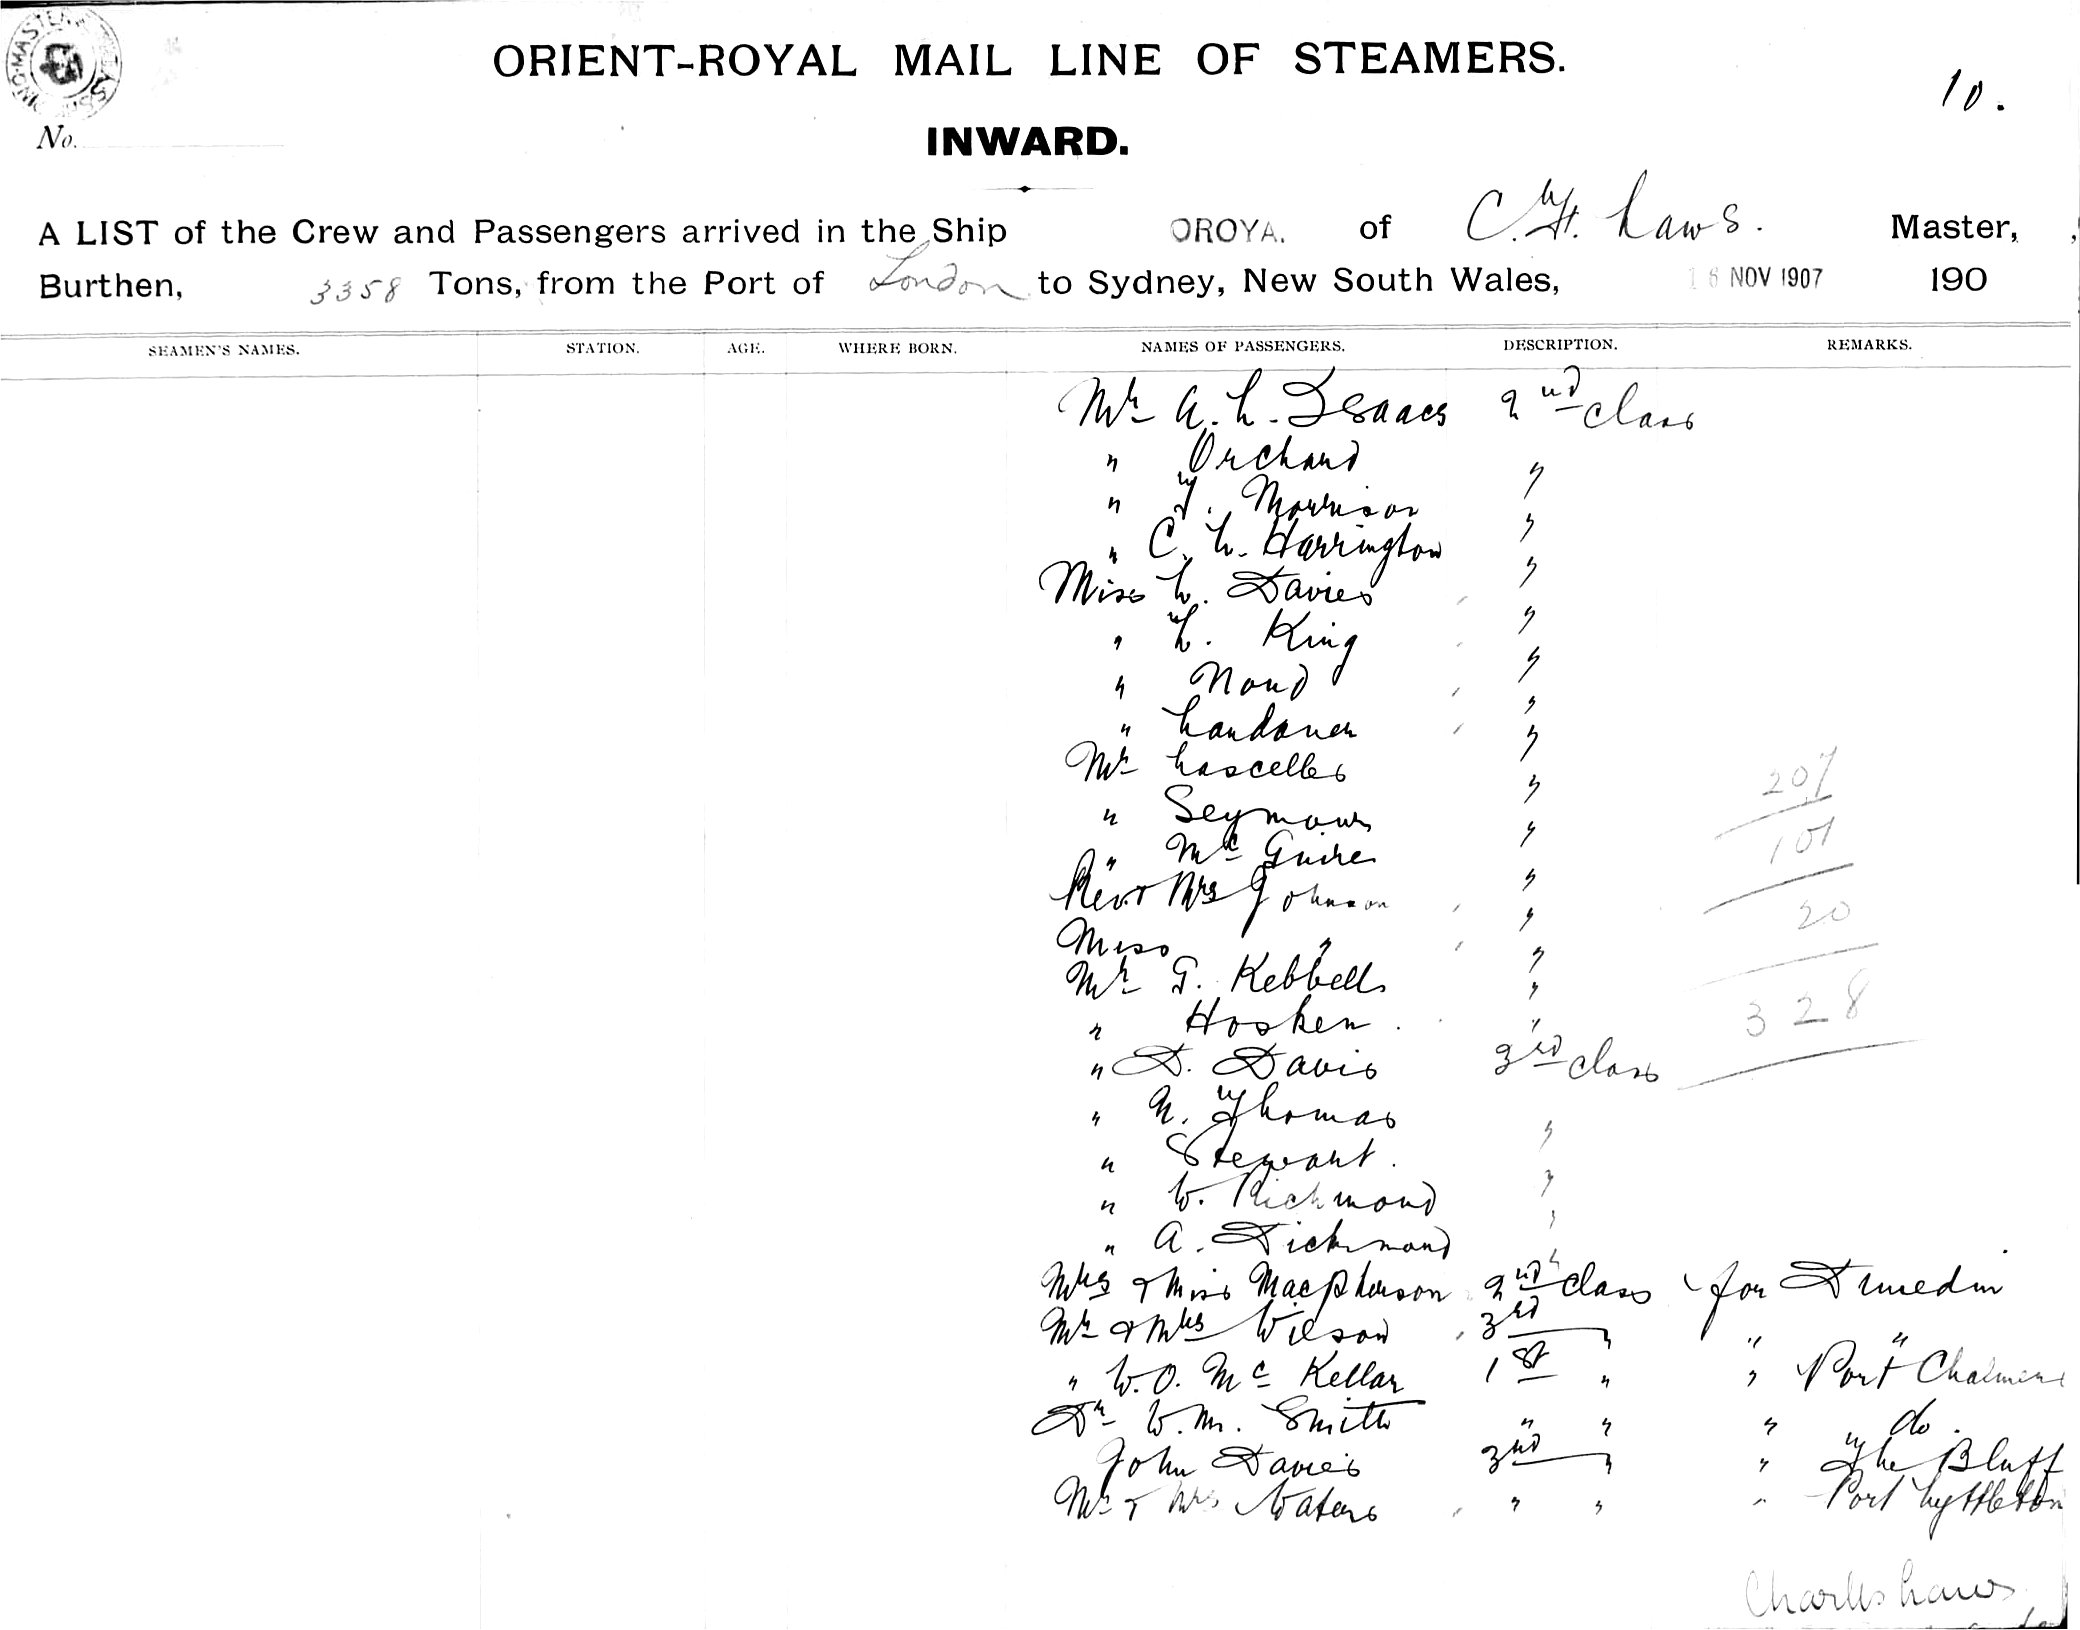 ORIENT-ROYAL MAIL LINE OF STEAMERS.
10.
No.
INWARD.
A LIST of the Crew and Passengers arrived in the Ship OROYA. of C. H. Laws. Master,
Burthen, 3358 Tons, from the Port of London to Sydney, New South Wales, 16 NOV 1907 190
SEAMEN'S NAMES. STATION. AGE. WHERE BORN. NAMES OF PASSENGERS. DESCRIPTION. REMARKS.
Mr A. L. Isaacs 2nd class
" Orchard "
" T. Morrison "
" C. L. Harrington "
Miss L. Davies "
" L. King "
" "
" Landauer "
Mr Lascelles "
" Seymour "
" McGuire "
Rev. & Mrs Johnson "
Miss " "
Mr G. Kebbell "
" Hosken "
" D. Davis 3rd class
" N. Thomas "
" Stewart. "
" W. Richmond "
" A. Dickmond "
Mrs & Miss Macpherson 2nd class for Dunedin
Mr & Mrs Wilson 3rd " " "
" W. O. McKellar 1st " " Port Chalmers
Dr W. M. Smith " " " do.
John Davies " " The Bluff
Mr & Mrs Waters " " " Port Lyttleton
207
101
20
328
Charles Laws